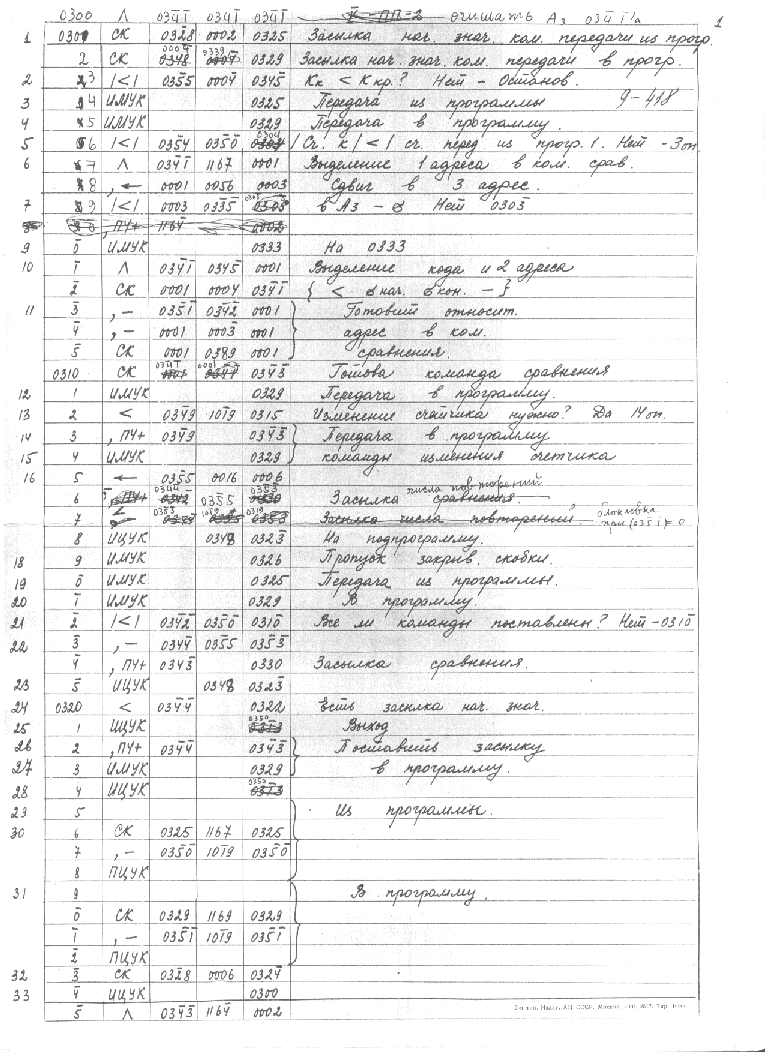 0300 Λ 034̄1̄ 034̄1̄ 034̄1̄ К̄ - ПП-2 очищать А₃ 034̄1̄ 1/а 1
1 0301 СК 0328 0002 0325 Засилка нач. знач. ком. передачи из прогр.
2 СК 0348 0004 0329 Засилка нач. знач. ком. передачи в прогр.
2 3 |<| 0355 0004 0345 Кк < К кр.? Нет - Останов.
3 4 ИМУК 0325 Передача из программы 9-418
4 5 ИМУК 0329 Передача в программу.
5 6 |<| 0354 0350 0304 Сч. к |<| сч. перед из прогр. 1. Нет - 3оп
6 7 Λ 0341 1167 0001 Выделение 1 адреса в ком. срав.
8 , ← 0001 0056 0003 Сдвиг в 3 адрес.
7 9 |<| 0003 0335 0303 в А3 - α Нет 0303
0 , ПУ+ 1164 0002
9 0̄ ИМУК 0333 На 0333
10 1̄ Λ 0341 0345 0001 Выделение кода и 2 адреса
2̄ СК 0001 0004 0341 { < α нач. α кон. - }
11 3̄ , - 0351 0342 0001 Готовит относит.
4̄ , - 0001 0003 0001 адрес в ком.
5̄ СК 0001 0389 0001 сравнения.
0310 СК 0341 0001 0343 Готова команда сравнения
12 1 ИМУК 0329 Передача в программу.
13 2 < 0349 1019 0315 Изменение счётчика нужно? Да 14 оп.
14 3 , ПУ+ 0349 0343 Передача в программу
15 4 ИМУК 0329 команды изменения счетчика
16 5 ← 0355 0016 0006
6 , ПУ+ 0344 0355 0353 Засилка числа повторений сравнения.
7 0353 1019 0319 Засилка числа повторений блокировка при (0351) ≠ 0
8 ИЦУК 0348 0323 На подпрограмму.
18 9 ИМУК 0326 Пропуск закрыв. скобки.
19 0̄ ИМУК 0325 Передача из программы.
20 1̄ ИМУК 0329 В программу.
21 2̄ |<| 0342 0350 0310 Все ли команды поставлены? Нет - 0310
22 3̄ , - 0344 0355 0353
4̄ , ПУ+ 0343 0330 Засилка сравнения.
23 5̄ ИЦУК 0348 0323
24 0320 < 0344 0322 Есть засилка нач. знач.
25 1 ИЦУК 0350 Выход
26 2 , ПУ+ 0344 0343 Поставить засилку
27 3 ИМУК 0329 в программу.
28 4 ИЦУК 0350
29 5 Из программы.
30 6 СК 0325 1167 0325
7 , - 0350 1019 0350
8 ПЦУК
31 9 В программу.
0̄ СК 0329 1169 0329
1̄ , - 0351 1019 0351
2̄ ПЦУК
32 3̄ СК 0328 0006 0324
33 4̄ ИЦУК 0300
5̄ Λ 0343 1164 0002